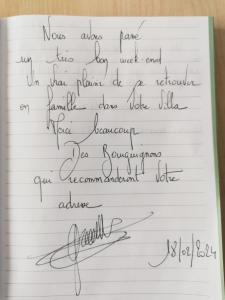 Nous avons passé
un très bon week-end
Un vrai plaisir de se retrouver
en famille dans votre villa
Merci beaucoup
Des Bourguignons
qui recommanderont votre
adresse
18/02/2024